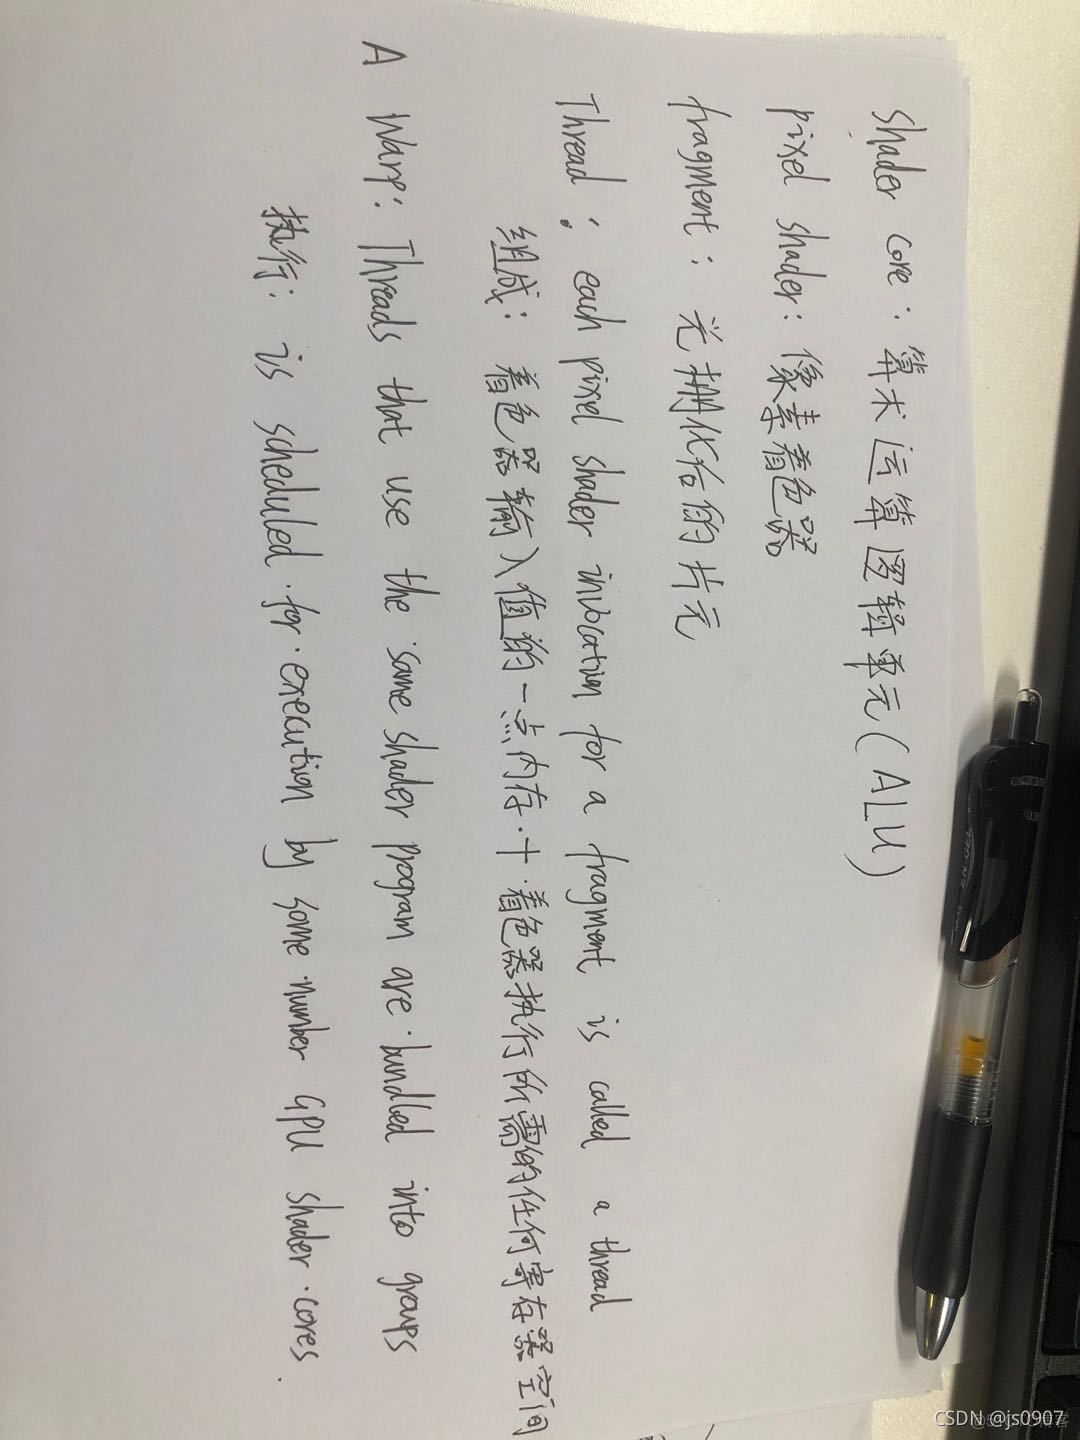 Shader core：算术运算逻辑单元(ALU)
pixel shader：像素着色器
fragment：光栅化后的片元
Thread：each pixel shader invocation for a fragment is called a thread
组成：着色器输入值的一点内存+着色器执行所需的任何寄存器空间
A Warp：Threads that use the same shader program are bundled into groups
执行：is scheduled for execution by some number GPU shader cores.
CSDN @js0907